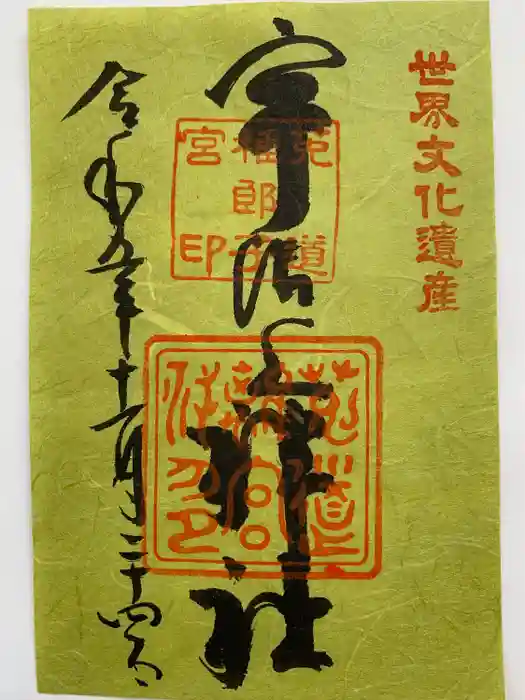 世界文化遺産
宇治上神社
菟道
稚郎子
宮印
令和五年十一月二十四日